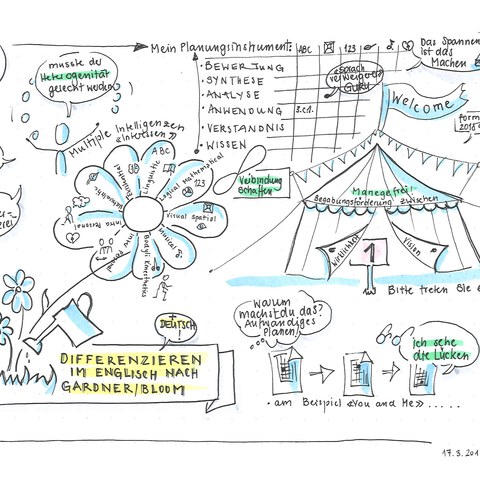 Mein Planungsinstrument:
ABC
123
Das Spannen
ist das
Machen
musste du
Heterogenität
gerecht werden
BEWERTUNG
SYNTHESE
ANALYSE
ANWENDUNG
VERSTÄNDNIS
WISSEN
3.c.1.
Sprach
Guru
Welcome
form
2018
Multiple Intelligenzen
«Interessen»
Existential
Linguistic
ABC
Logical Mathematical
123
Visual spatial
Musical
Bodily Kinesthetics
Inter Personal
Intra Personal
Naturalistic
Verbindung
schaffen
Manege frei!
Begabungsförderung zwischen
Wirklichkeit
1
Vision
Bitte treten Sie e
+
DEUTSCH!
DIFFERENZIEREN
IM ENGLISCH NACH
GARDNER/BLOOM
Warum
machst du das?
Aufwändiges
Planen
ich sehe
die Lücken
• am Beispiel «You and Me» .....
17.3.201